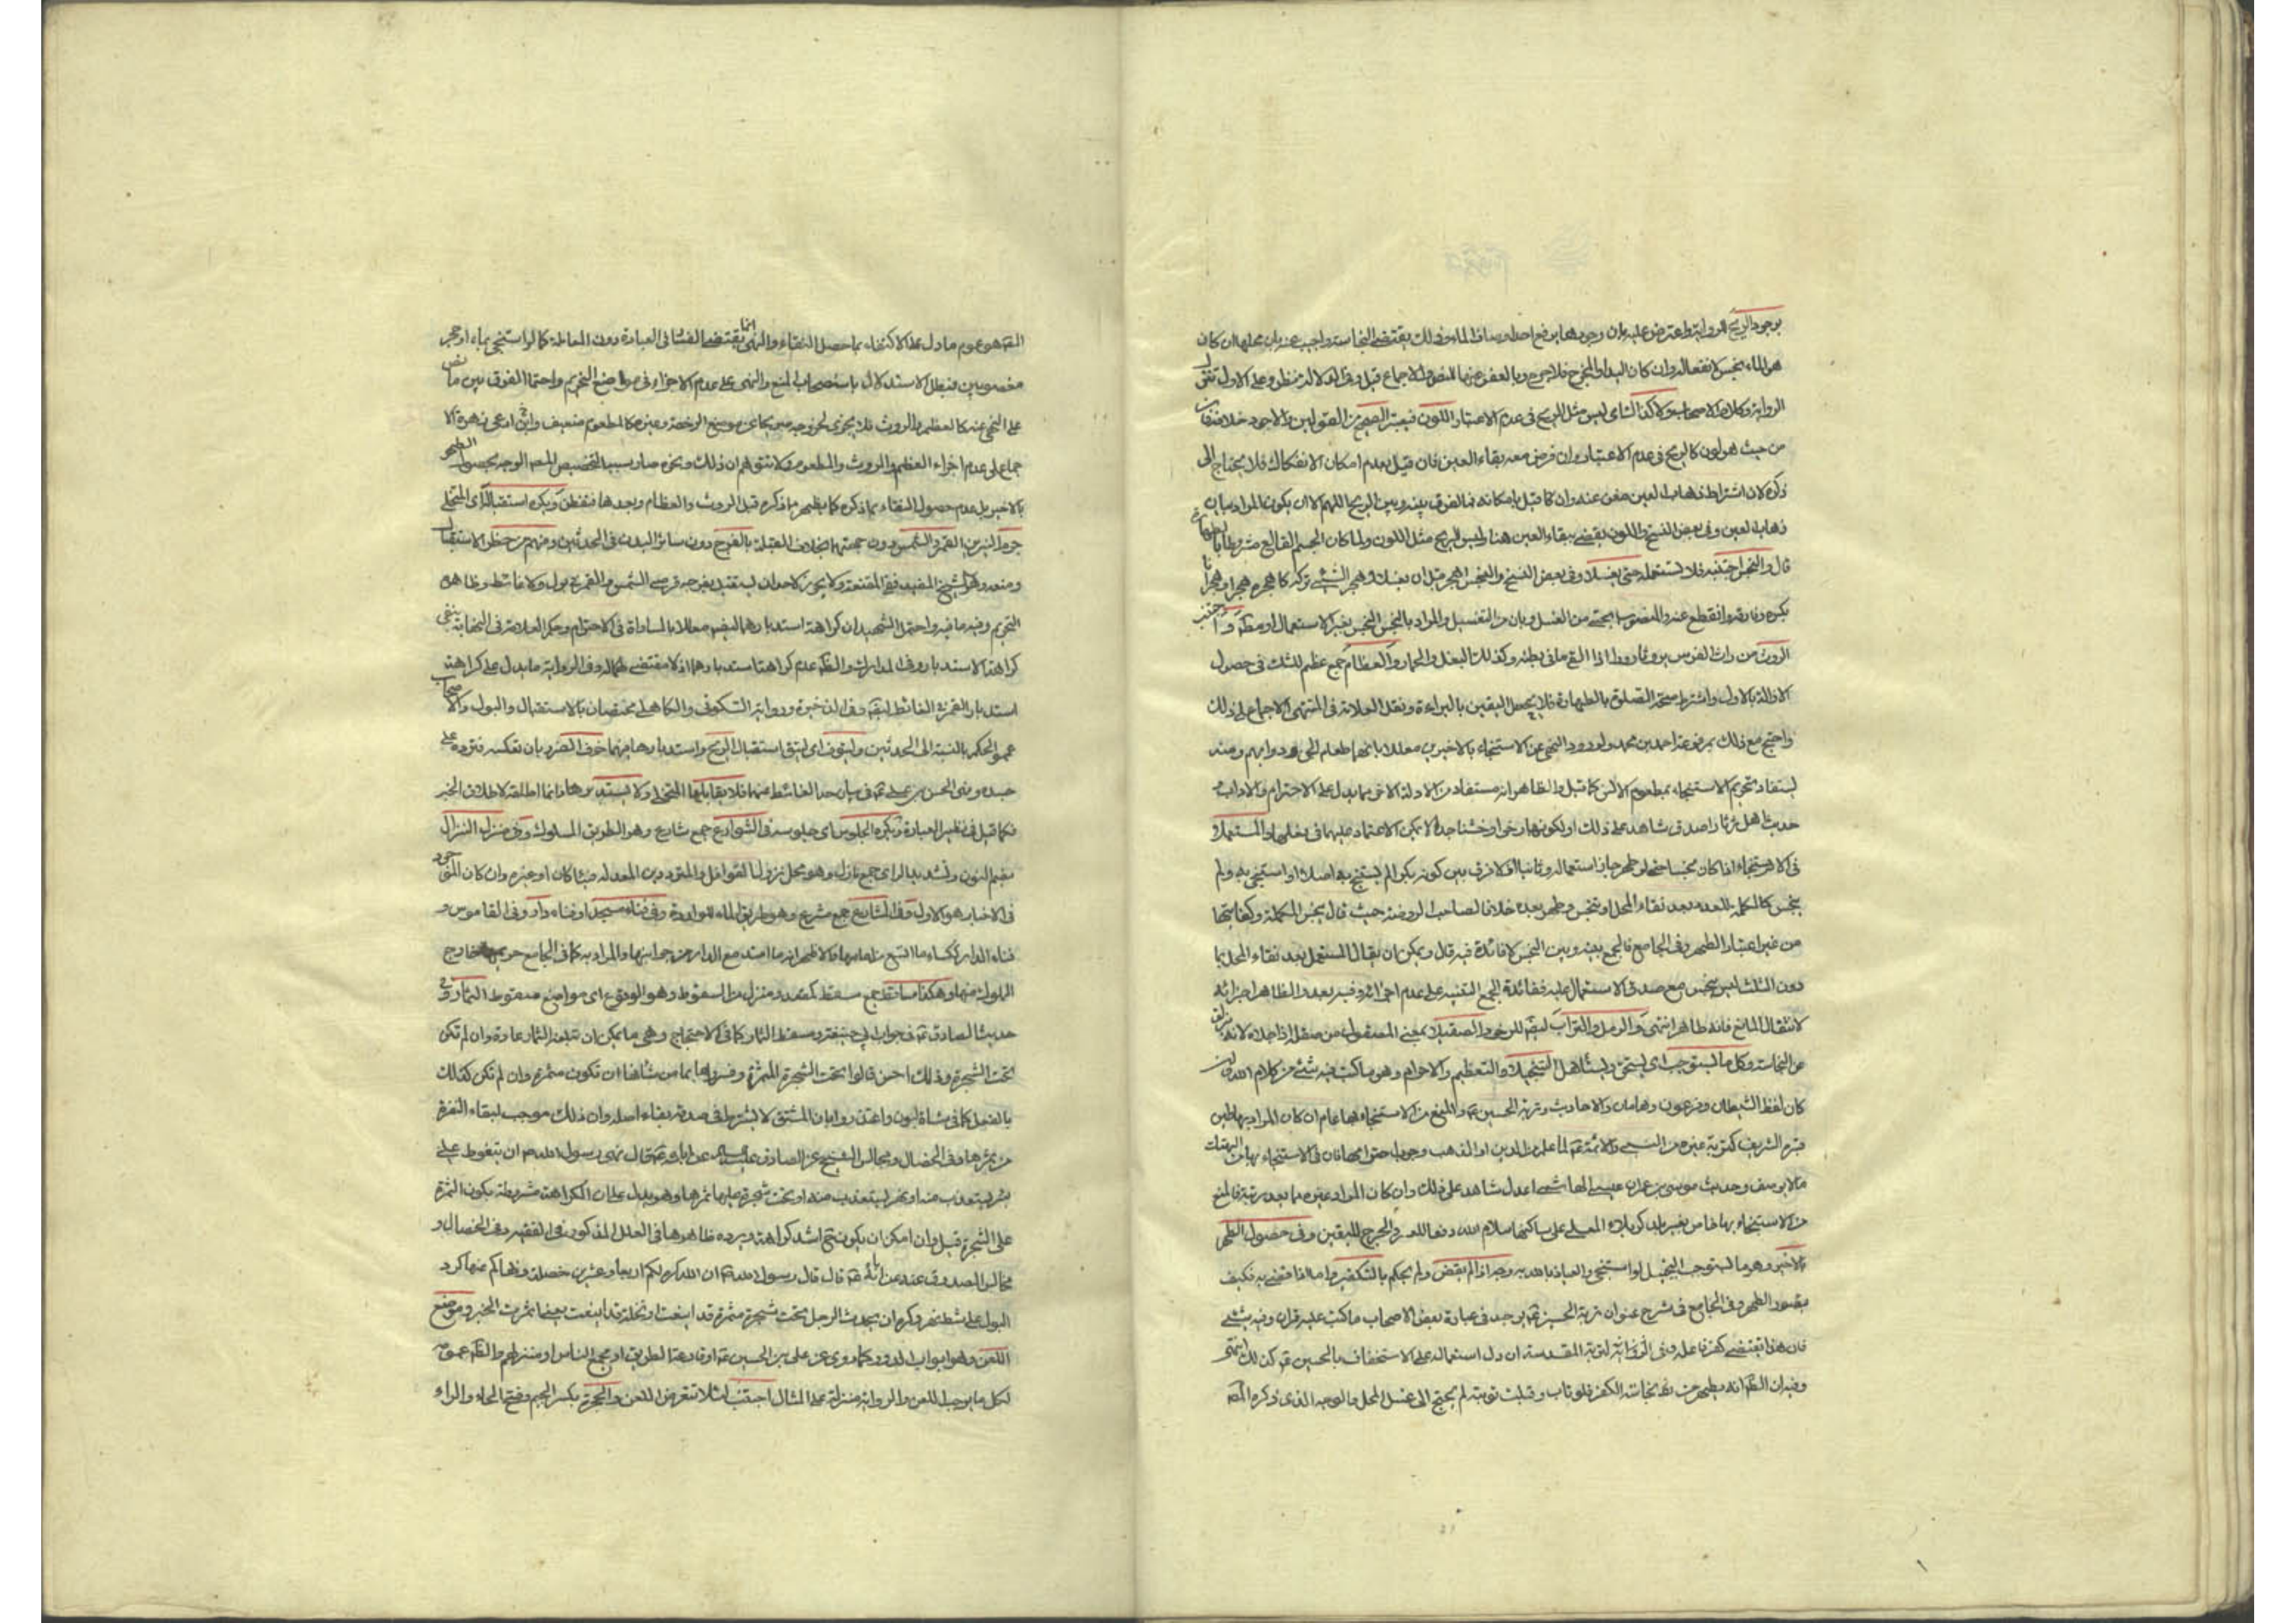 بوجود الريح للرواية واعترض عليه بان وجودها يرفع احد اوصاف الماء وذلك يقتضي النجاسة واجيب عنه بان محلها ان كان
هو الماء نجس لانفعاله وان كان اليد او المخرج فلا حرج وبالعفو عنها للنص والاجماع قيل وفي الدلالة نظر وعلى الاول تتفق
الرواية وكلام الاصحاب ولا كذا الثاني ليس مثل الريح في عدم الاعتبار اللون فيعتبر الصحيح من القولين والاجود خلافه
من حيث هو لون كالريح في عدم الاعتبار وان فرض معه بقاء العين فان قيل بعدم امكان الانفكاك فلا يحتاج الى
ذكره لان اشتراط ذهاب العين مغن عنه وان قيل بامكانه فما الفرق بينه وبين الريح اللهم الا ان يكون المراد بيان
ذهاب العين وفي بعض النسخ واللون يقضي ببقاء العين هنا وليس الريح مثل اللون ولما كان الجسم القالع مشروطا بالطهارة
قال والنجس اجتنبه فلا تستعمله حتى يغسل وفي بعض النسخ والنجس اهجر قبل ان يغسل وهجر الشيء تركه كاهجره هجرا وهجرانا
الروث من راث الفرس يروث روثا اذا القى ما في بطنه وكذلك البغل والحمار والعظام جمع عظم للشك في حصول
الازالة بالاول واشتراط صحة الصلوة بالطهارة فلا يحصل اليقين بالبراءة ونقل العلامة في المنتهى الاجماع على ذلك
واحتج مع ذلك بمرفوعة احمد بن محمد ولورود النهي عن الاستنجاء بالاخيرين معللا بانها طعام الجن ودوابهم ومنه
يستفاد تحريم الاستنجاء بمطعوم الانس كما قيل والظاهر انه مستفاد من الادلة الاخر مما يدل على الاحترام والاداب و
حديث اهل ثرثار اصدق شاهد على ذلك او لكونها رخوا وخشنا جدا لا يمكن الاعتماد عليهما في بعلها والمستعمل
في الاستنجاء اذا كان نجسا حتى لو طهر جاز استعماله وثانيا فلا فرق بين كونه بكرا لم يستنج به اصلا او استنجي به ولم
ينجس كالمكملة للعدد بعد نقاء المحل او تنجس وطهر بعده خلافا لصاحب الروضة حيث قال ينجس المكملة وكفايتها
من غير اعتبار الطهر وفي الجامع فالجمع بينه وبين النجس لا فائدة فيه قال ويمكن ان يقال المستعمل بعد نقاء المحل بما
دون الثلث ليس بنجس مع صدق الاستعمال عليه ففائدة الجمع التنبيه على عدم اجزائه وفيه بعد والظاهر اجزائه
لانتفاء المانع فانه طاهر انتهى والرمل والتراب ليقه للرخو والصقيل بمعنى المصقول من صقله اذا جلاه لانه يزلق
عن النجاسة وكل ما يستوجب اي يستحق ويستأهل التبجيل والتعظيم والاحترام وهو ما كتب فيه شيء من كلام الله وان
كان لفظ الشيطان وفرعون وهامان والاحاديث وتربة الحسين ع والمنع من الاستنجاء بها عام ان كان المراد بها طين
قبره الشريف كتربة غيره من النبي والائمة
من الاستنجاء بها خاص بغير بلد كربلاء المعلى على ساكنها سلام الله دفعا للعسر والحرج لليقين وفي حصول الطهر
بالاخير وهو ما يستوجب التبجيل لو استنجي والعياذ بالله به وجه اذا لم يقض ولم يحكم بالتكفير واما اذا قضي به فكيف
يقصور الطهر وفي الجامع في شرح عنوان تربة الحسين ع يوجد في عبارة بعض الاصحاب ما كتب عليه قران وفيه شيء
فان هذا يقتضي كفر فاعله وفي التربة المقدسة ان دل استعماله على الاستخفاف بالحسين ع كذلك انتهى
وفيه ان الظ انه يطهر من نجاسة الكفر فلو تاب وقبلت توبته لم يحتج الى غسل المحل والوجه الذي ذكره المص
المص هو عموم ما دل على الاكتفاء بما حصل النقاء والنهي انما يقتضي الفساد في العبادة دون المعاملة كما لو استنجى بماء او حجر
مغصوبين فبطل الاستدلال باستصحاب المنع والنهي على عدم الاجزاء في مواضع التحريم واحتمال الفرق بين ما نص
على النهي عنه كالعظم والروث فلا يجزي لخروجه عن موضع الرخصة وغيره كالمطعوم ضعيف وابن زهرة ادعى الا
جماع على عدم اجزاء العظم والروث والمطعوم ولا نتوهم ان ذلك ونحوه صار سببا لتخصيص المص الوجه بحصول الطهر
بالاخير بل عدم حصول النقاء بما ذكره كما يظهر ما ذكره قبل الروث والعظام وبعدها فتفطن ويكره استقبال اي المتخلي
جرم النيرين القمر والشمس دون جهتهما بخلاف القبلة بالفرج دون سائر البدن في الحدثين ومنهم من حظر الاستقبال
ومنعه وهو الشيخ المفيد ففي المقنعة ولا يجوز لاحد ان يستقبل بفرجه قرصي الشمس والقمر في بول ولا غائط وظاهره
التحريم وفيه ما فيه واحتمل الشهيد ان كراهة استدبارهما ليضه معللا بالمساواة في الاحترام وحكم العلامة في النهاية بنفي
كراهة الاستدبار وفي المدارك والظ عدم كراهة استدبارهما اذ لا مقتضي لها وفي الرواية ما يدل على كراهة
استدبار القمر في الغائط ليقه وفي الذخيرة ورواية السكوني والكاهلي مختصان بالاستقبال والبول والاصحاب
عمموا الحكم بالنسبة الى الحدثين وليتوق اي ليتق استقبال الريح واستدبارها منهما خوف الضرر بان تعكسه فترده على
جسده وينهى الحسن بن علي ع في بيان حد الغائط عنهما فلا يقابلها المتخلي ولا يستدبرها وانما اطلقه لاطلاق الخبر
كما قيل في نظير العبارة ويكره الجلوس اي جلوسه في الشوارع جمع شارع وهو الطريق المسلوك وفي منزل النزال
بضم النون وتشديد الزاي جمع نازل وهو محل نزول القوافل والمترددين المعد له فيئا كان او غيره وان كان الموجود
في الاخبار هو الاول وفي المشارع جمع مشرع وهو طريق الماء للواردة وفي فناء مسجد او فناء دار وفي القاموس و
فناء الدار ككساء ما اتسع من امامها والاظهر انه ما امتد مع الدار من جوانبها والمراد به كما في الجامع حريمها خارج
المملوك منها وهكذا مساقط جمع مسقط كمقعد ومنزل من السقوط وهو الوقوع اي مواضع سقوط الثمار وفي
حديث الصادق ع في جواب ابي حنيفة ومسقط الثمار كما في الاحتجاج وهي ما يمكن ان تبلغه الثمار عادة وان لم تكن
تحت الشجرة وذلك احسن قالوا تحت الشجرة المثمرة وفسروها بما من شانها ان تكون مثمرة وان لم تكن كذلك
بالفعل كما في شاة لبون واعتذروا بان المشتق لا يشترط في صدقه بقاء اصله وان ذلك موجب لبقاء النفرة
من ثمرها وفي الخصال ومجالس الشيخ عن الصادق عليه السلام عن ابائه ع قال نهى رسول الله ص ان يتغوط على
شفير بئر يستعذب منها او نهر يستعذب منه او تحت شجرة عليها ثمرها وهو يدل على ان الكراهة مشروطة بكون الثمرة
على الشجرة قيل وان امكن ان يكون ح اشد كراهة ويرده ظاهرها في العلل المذكور في الفقيه وفي الخصال و
مجالس الصدوق عنه عن ابائه ع قال قال رسول الله ص ان الله كره لكم اربعا وعشرين خصلة ونهاكم عنها كره
البول على شط نهر وكره ان يحدث الرجل تحت شجرة مثمرة قد اينعت او نخلة قد اينعت يعني اثمرت الخبر وموضع
اللعن وهو ابواب الدور كما روي عن علي بن الحسين ع او قارعة الطريق او مجمع الناس او منزلهم والظ عمومه
لكل ما يوجب اللعن والرواية منزلة على المثال اجتنب لئلا تتعرض اللعن والجحرة بكسر الجيم وفتح الحاء والراء